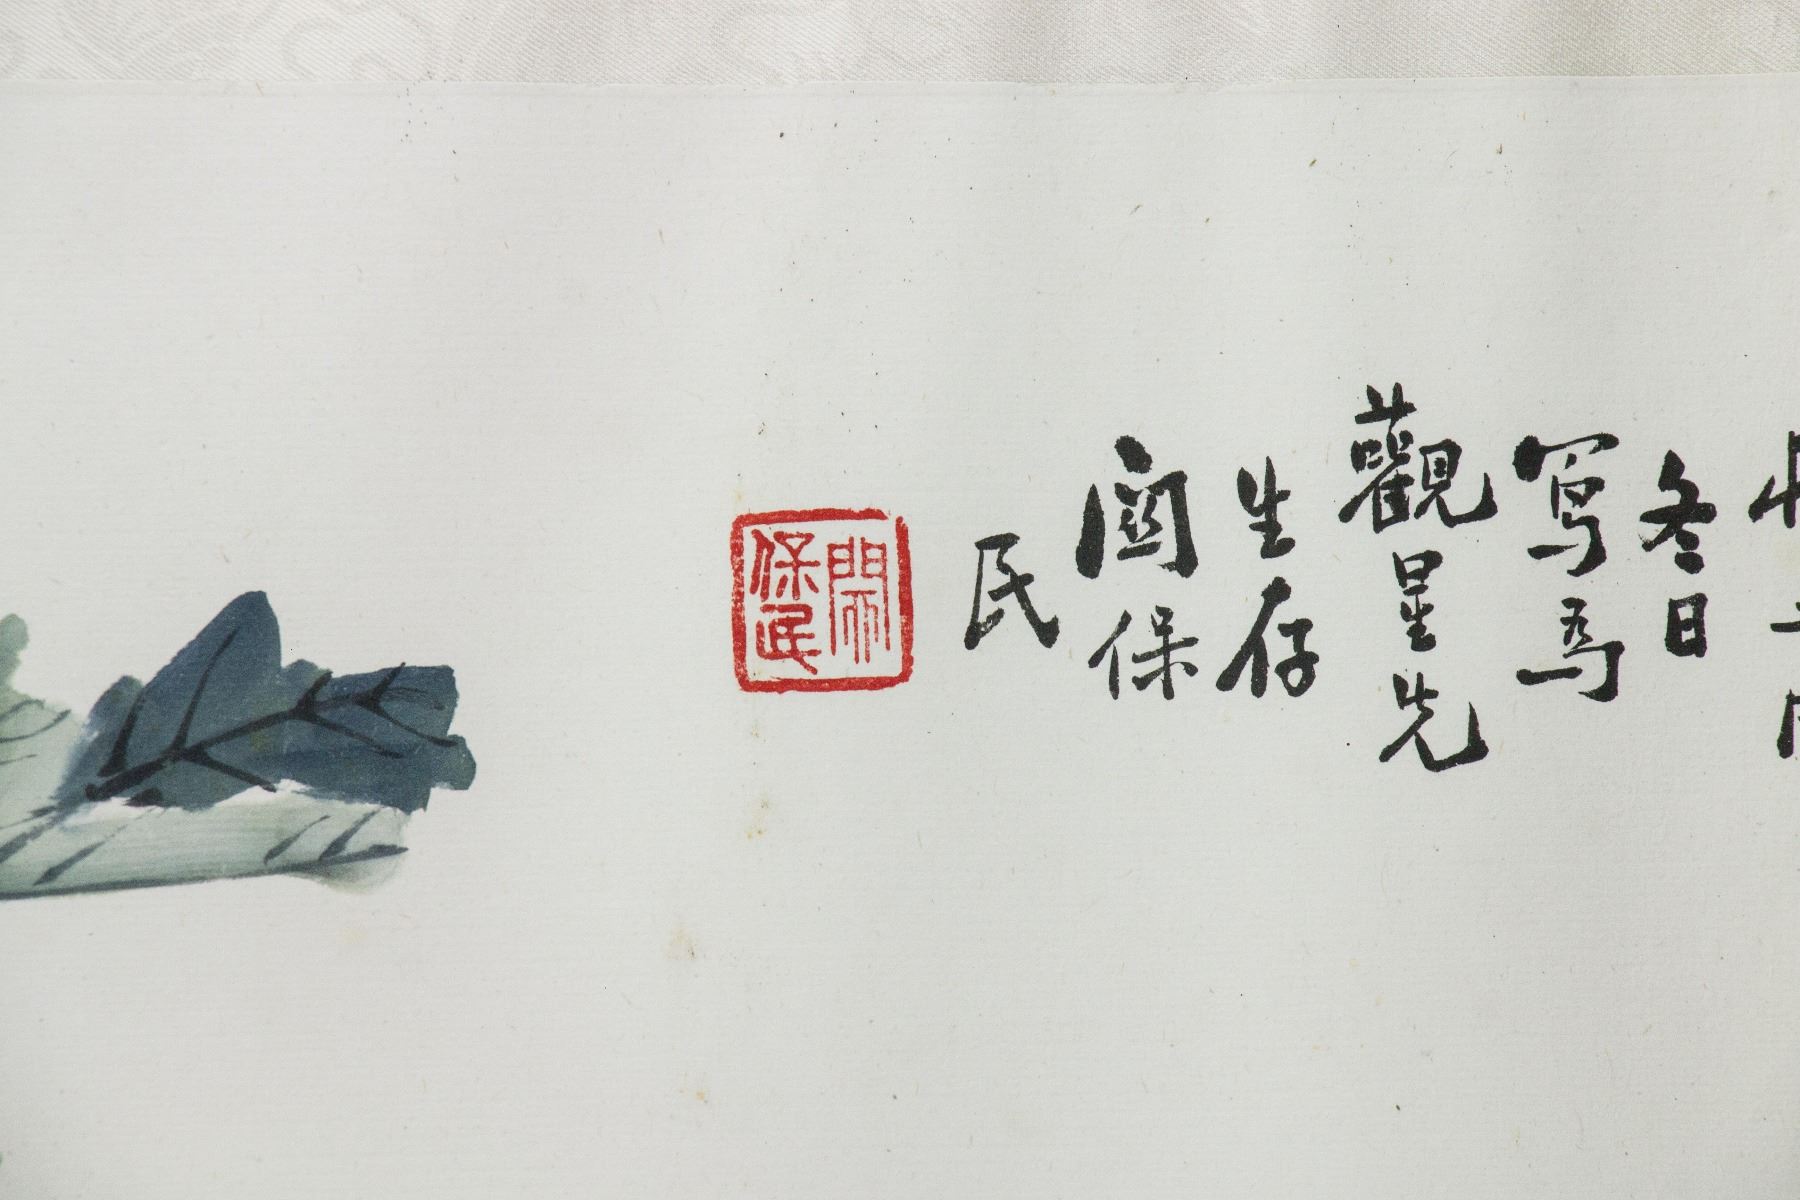 冬日
写為
觀星先
生存
関保
民
関
保民